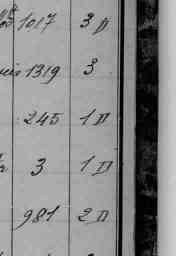 1017 3 D
1319 3
245 1 D
3 1 D
981 2 D